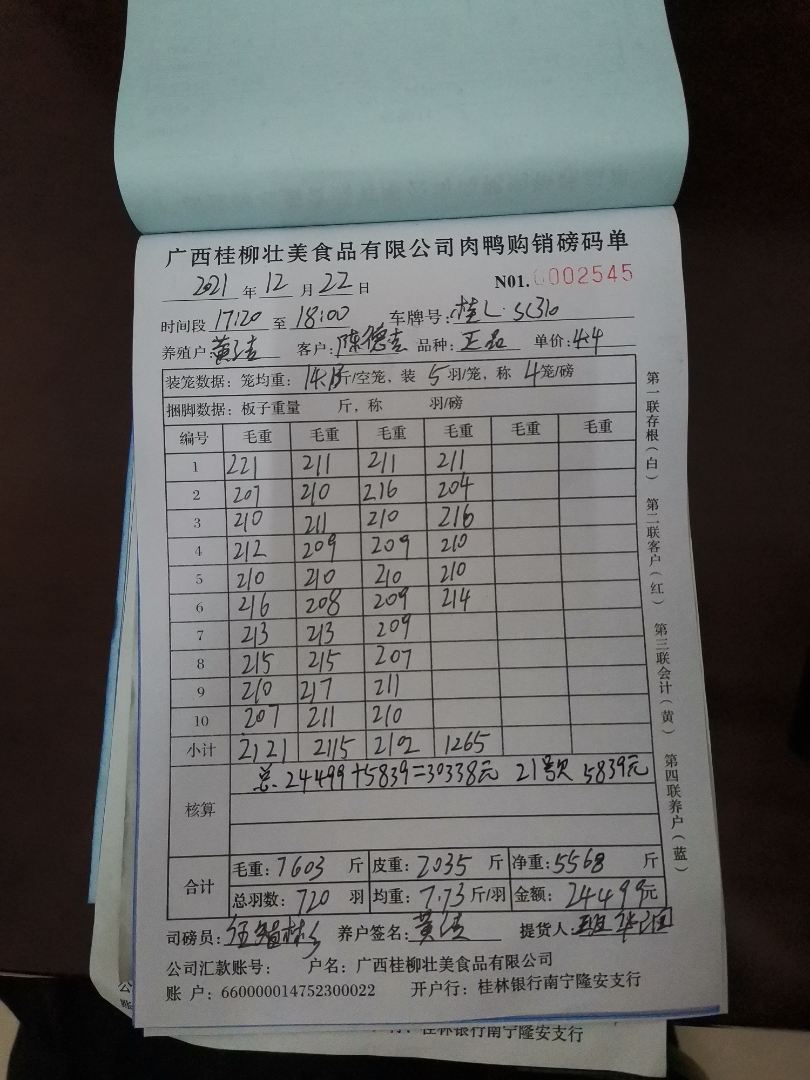 广西桂柳壮美食品有限公司肉鸭购销磅码单
2021 年 12 月 22 日 N01. 0002545
时间段 17:20 至 18:00 车牌号: 桂L·SC310
养殖户: 黄 客户: 陈德 品种: 正品 单价: 4.4
装笼数据: 笼均重: 斤/空笼, 装 5 羽/笼, 称 4 笼/磅
捆脚数据: 板子重量 斤, 称 羽/磅
编号 毛重 毛重 毛重 毛重 毛重 毛重
1 221 211 211 211
2 207 210 216 204
3 210 211 210 216
4 212 209 209 210
5 210 210 210 210
6 216 208 209 214
7 213 213 209
8 215 215 207
9 210 217 211
10 207 211 210
小计 2121 2115 2102 1265
核算 总 24499+5839=30338元 21号欠 5839元
合计 毛重: 7603 斤 皮重: 2035 斤 净重: 5568 斤
总羽数: 720 羽 均重: 7.73 斤/羽 金额: 24499 元
司磅员: 养户签名: 黄 提货人: 班华
公司汇款账号: 户名: 广西桂柳壮美食品有限公司
账 户: 660000014752300022 开户行: 桂林银行南宁隆安支行
第一联存根(白) 第二联客户(红) 第三联会计(黄) 第四联养户(蓝)
桂林银行南宁隆安支行